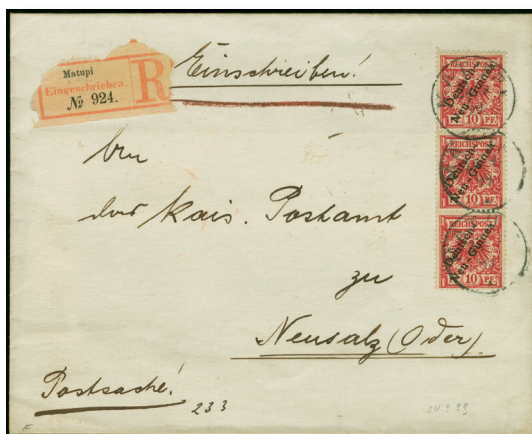 Matupi
Eingeschrieben.
№ 924.
R
Einschreiben!
REICHSPOST
10 PF
Deutsch-
Neu-Guinea
REICHSPOST
10 PF
Deutsch-
Neu-Guinea
REICHSPOST
10 PF
Deutsch-
Neu-Guinea
das Kais. Postamt
zu
Neusalz (Oder).
Postsache!
233